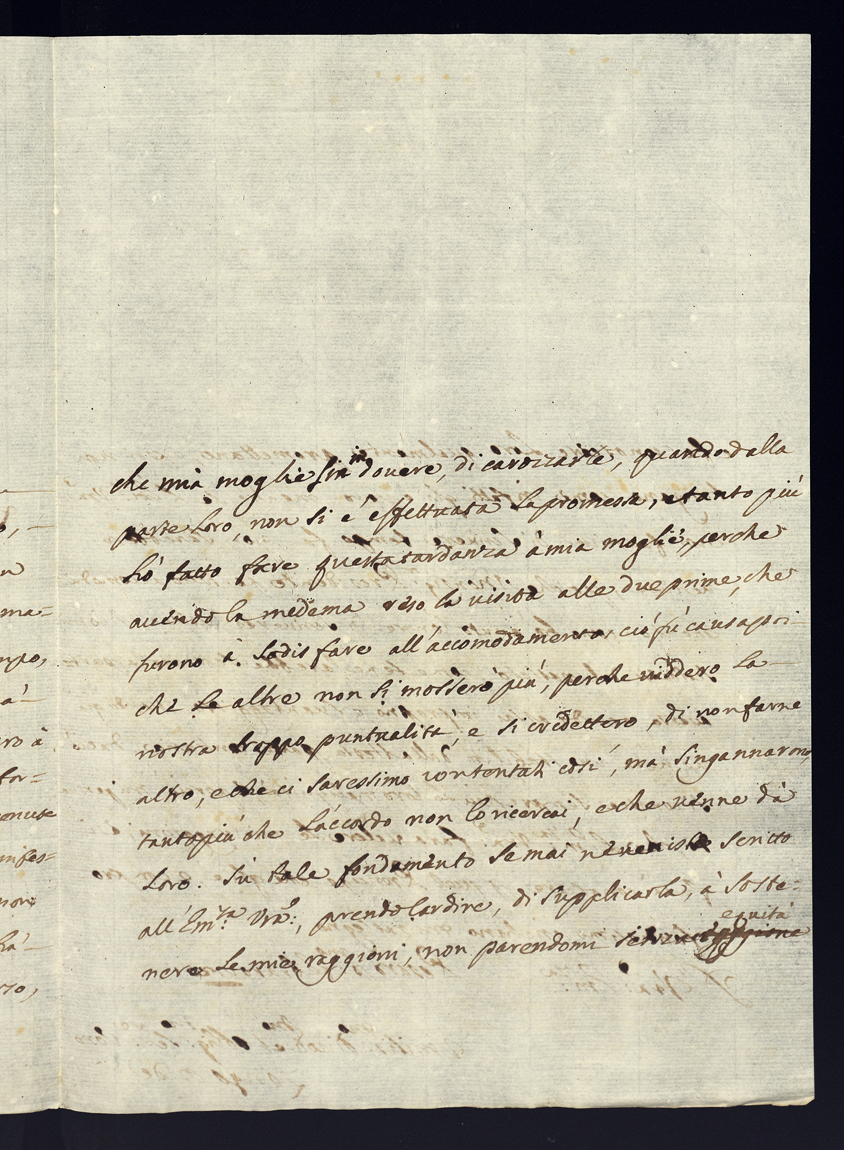 che mia moglie sia in dovere, di carozzarle, quando dalla
parte Loro, non si é effettuata La promessa, e tanto più
hò fatto fare questa tardanza à mia moglie, perche
avendo la medema reso la visita alle due prime, che
furono à sodisfare all'accomodamento, ciò fú causa poi
che Le altre non si mossero più, perche viddero La
nostra troppo puntualità, e si credettero, di non farne
altro, e che ci saressimo contentati cosí, má s'ingannarono,
tanto più che L'accordo non Lo ricercai, e che venne dà
Loro. Sù tale fondamento se mai ne venisse scritto
all'Em.za Vra:, prendo L'ardire, di supplicarla, à soste=
nere Le mie raggioni, non parendomi equità
ma=
mpo,
à
ro à
for=
enute
nifes=
non
hà